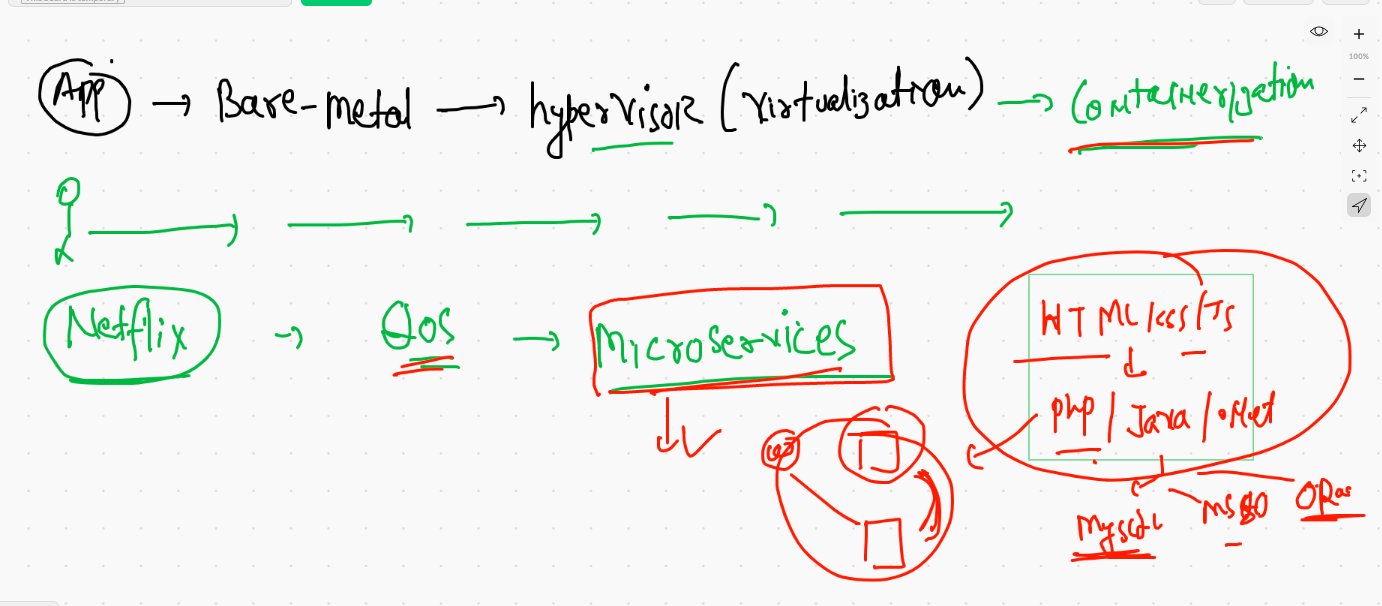 App → Bare-metal → hypervisor (virtualization) → Containerization
Netflix → QoS → Microservices
HTML/css/Js
PHP/Java/.Net
Mysql
100%